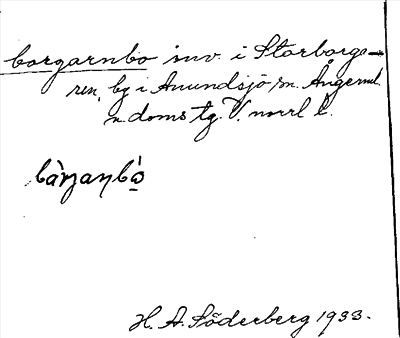 borgarnbo inv. i Storborga-
ren, by i Anundsjö sn. Ångerml.
n. doms tg. V. norrl l.
H. A. Söderberg 1933.